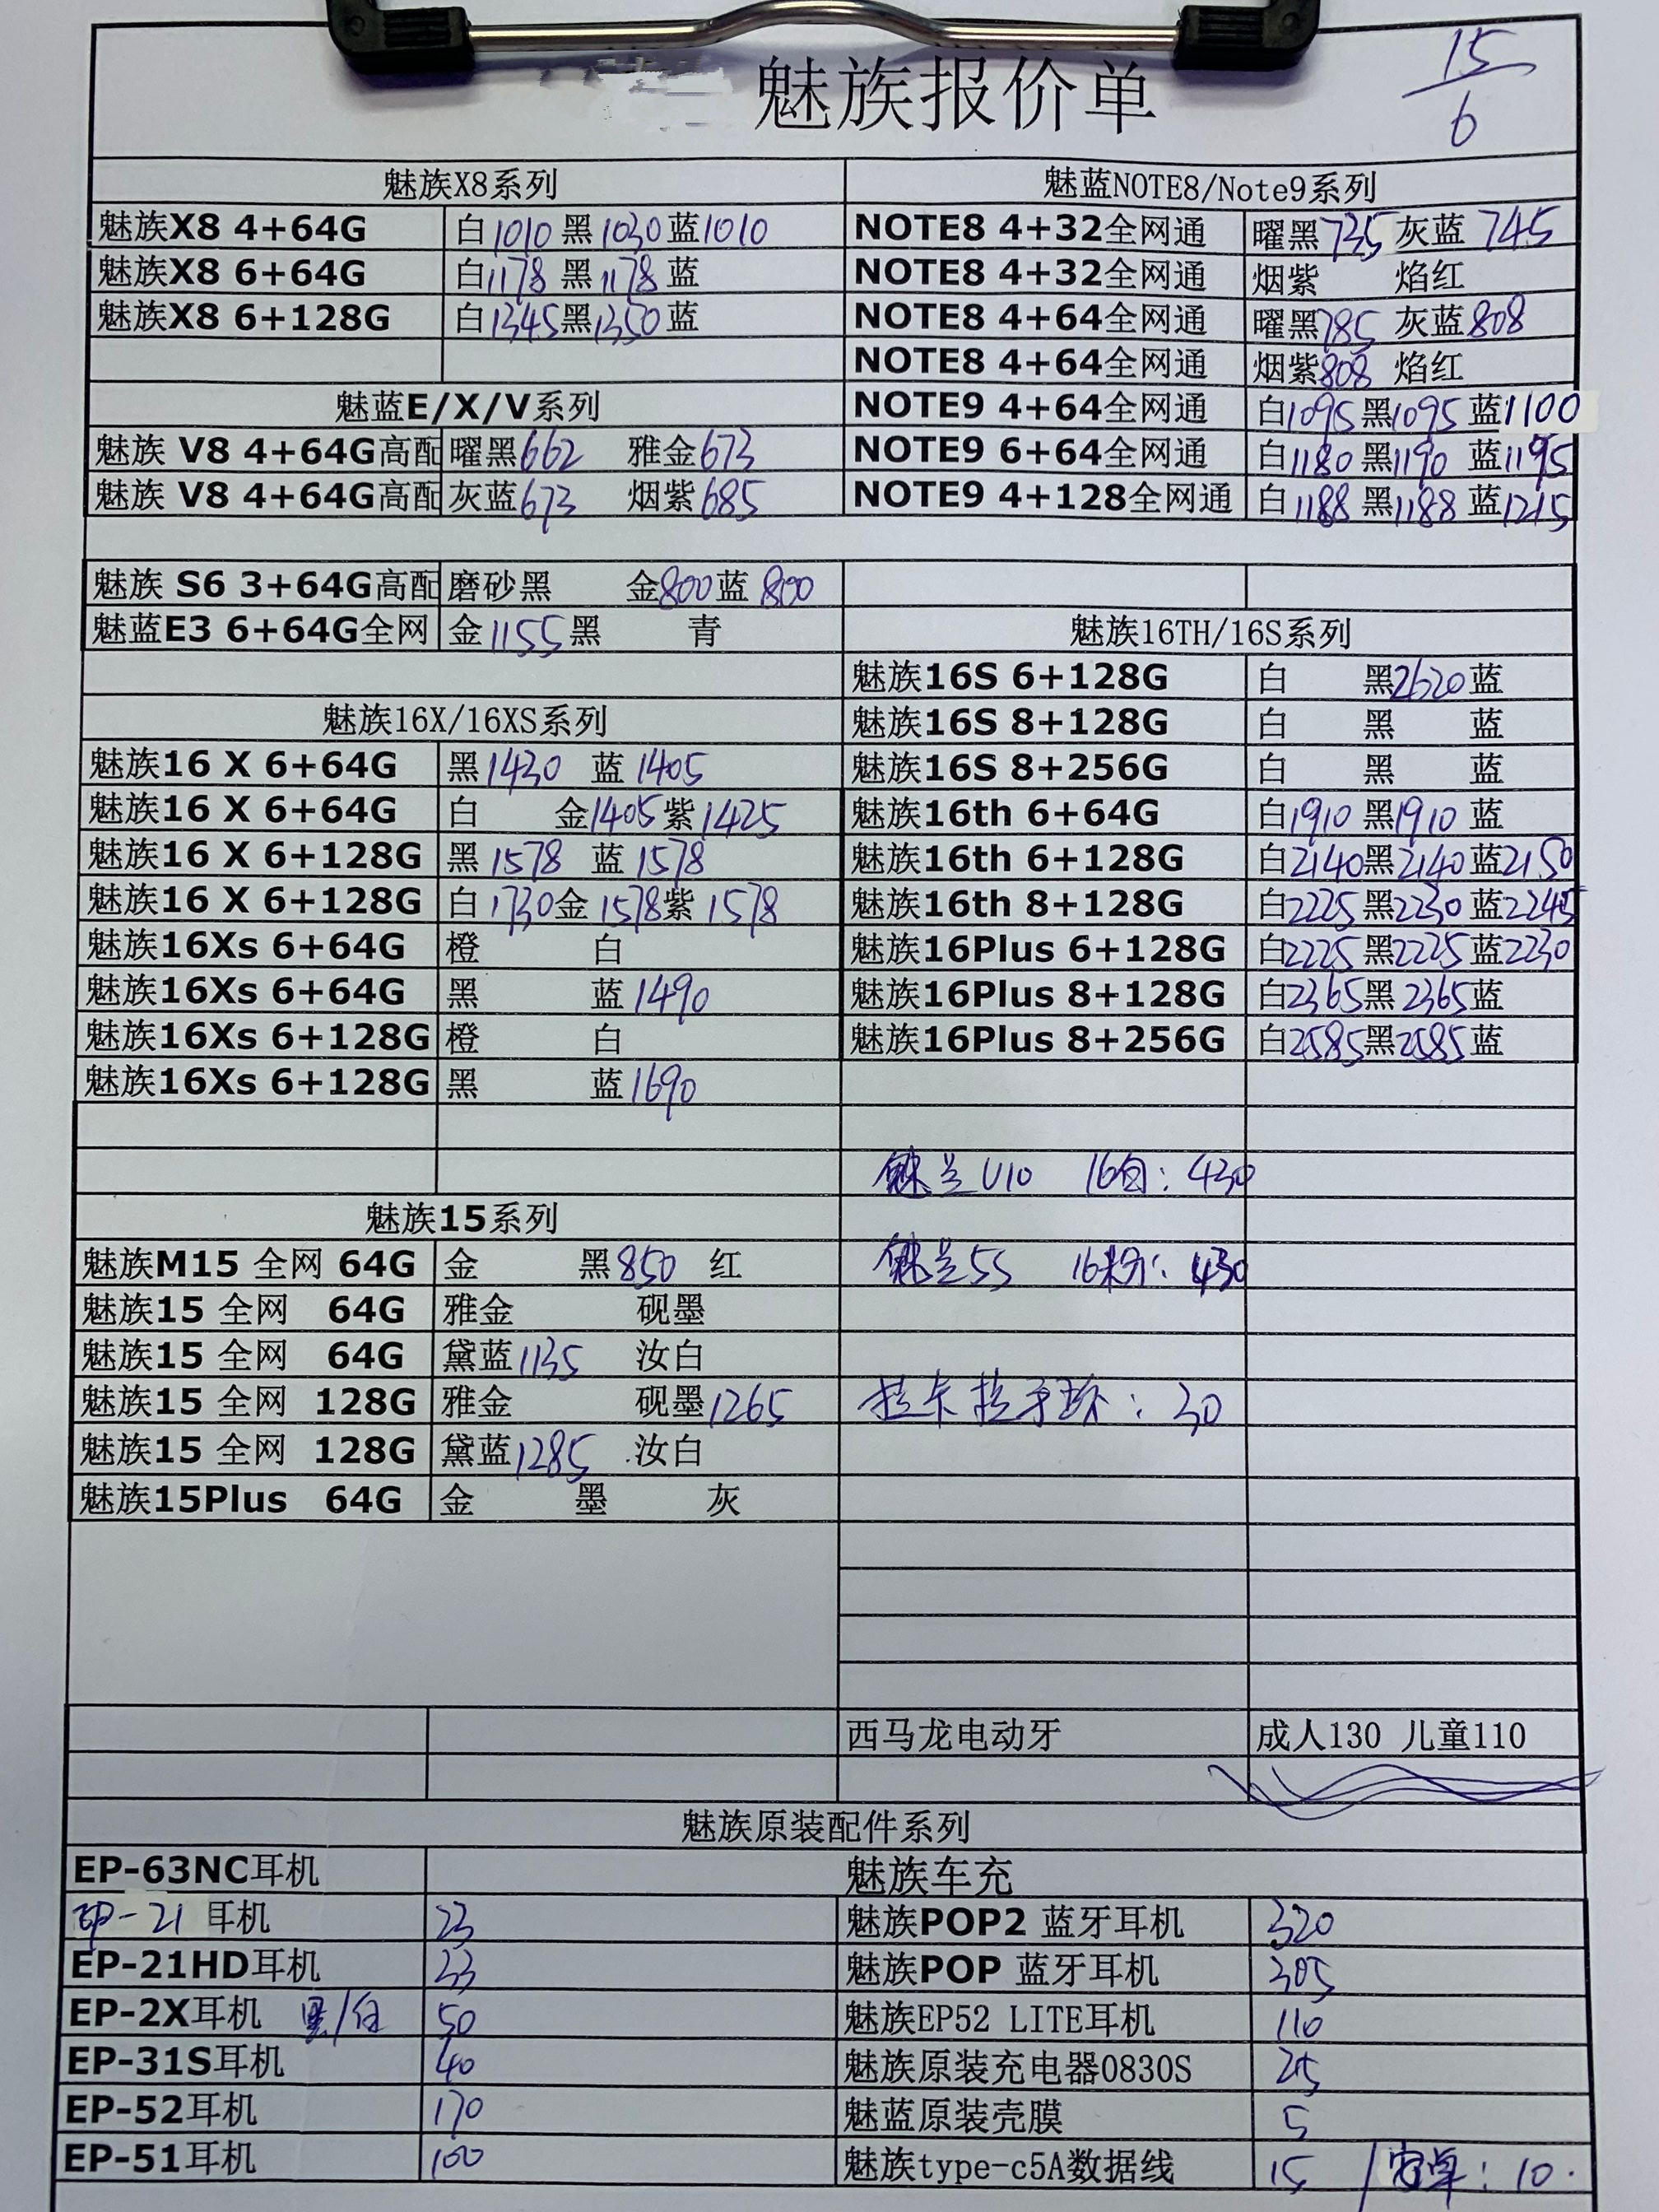 魅族报价单
15/6
魅族X8系列
魅族X8 4+64G 白1010 黑1030 蓝1010
魅族X8 6+64G 白1178 黑1178 蓝
魅族X8 6+128G 白1345 黑1350 蓝
魅蓝E/X/V系列
魅族 V8 4+64G高配 曜黑662 雅金673
魅族 V8 4+64G高配 灰蓝673 烟紫685
魅族 S6 3+64G高配 磨砂黑 金800 蓝800
魅蓝E3 6+64G全网 金1155 黑 青
魅族16X/16XS系列
魅族16 X 6+64G 黑1430 蓝1405
魅族16 X 6+64G 白 金1405 紫1425
魅族16 X 6+128G 黑1578 蓝1578
魅族16 X 6+128G 白1730 金1578 紫1578
魅族16Xs 6+64G 橙 白
魅族16Xs 6+64G 黑 蓝1490
魅族16Xs 6+128G 橙 白
魅族16Xs 6+128G 黑 蓝1690
魅族15系列
魅族M15 全网 64G 金 黑850 红
魅族15 全网 64G 雅金 砚墨
魅族15 全网 64G 黛蓝1135 汝白
魅族15 全网 128G 雅金 砚墨1265
魅族15 全网 128G 黛蓝1285 汝白
魅族15Plus 64G 金 墨 灰
魅蓝NOTE8/Note9系列
NOTE8 4+32全网通 曜黑735 灰蓝745
NOTE8 4+32全网通 烟紫 焰红
NOTE8 4+64全网通 曜黑785 灰蓝808
NOTE8 4+64全网通 烟紫808 焰红
NOTE9 4+64全网通 白1095 黑1095 蓝1100
NOTE9 6+64全网通 白1180 黑1190 蓝1195
NOTE9 4+128全网通 白1188 黑1188 蓝1215
魅族16TH/16S系列
魅族16S 6+128G 白 黑2620 蓝
魅族16S 8+128G 白 黑 蓝
魅族16S 8+256G 白 黑 蓝
魅族16th 6+64G 白1910 黑1910 蓝
魅族16th 6+128G 白2140 黑2140 蓝2150
魅族16th 8+128G 白2225 黑2230 蓝2245
魅族16Plus 6+128G 白2225 黑2225 蓝2230
魅族16Plus 8+128G 白2365 黑2365 蓝
魅族16Plus 8+256G 白2585 黑2585 蓝
魅兰U10 16白：430
魅兰5S 16粉：430
拉卡拉手环：30
西马龙电动牙 成人130 儿童110
魅族原装配件系列
EP-63NC耳机 魅族车充
EP-21耳机 23 魅族POP2 蓝牙耳机 320
EP-21HD耳机 33 魅族POP 蓝牙耳机 305
EP-2X耳机 黑/白 50 魅族EP52 LITE耳机 110
EP-31S耳机 40 魅族原装充电器0830S 25
EP-52耳机 170 魅蓝原装壳膜 5
EP-51耳机 100 魅族type-c5A数据线 15 /安卓：10.